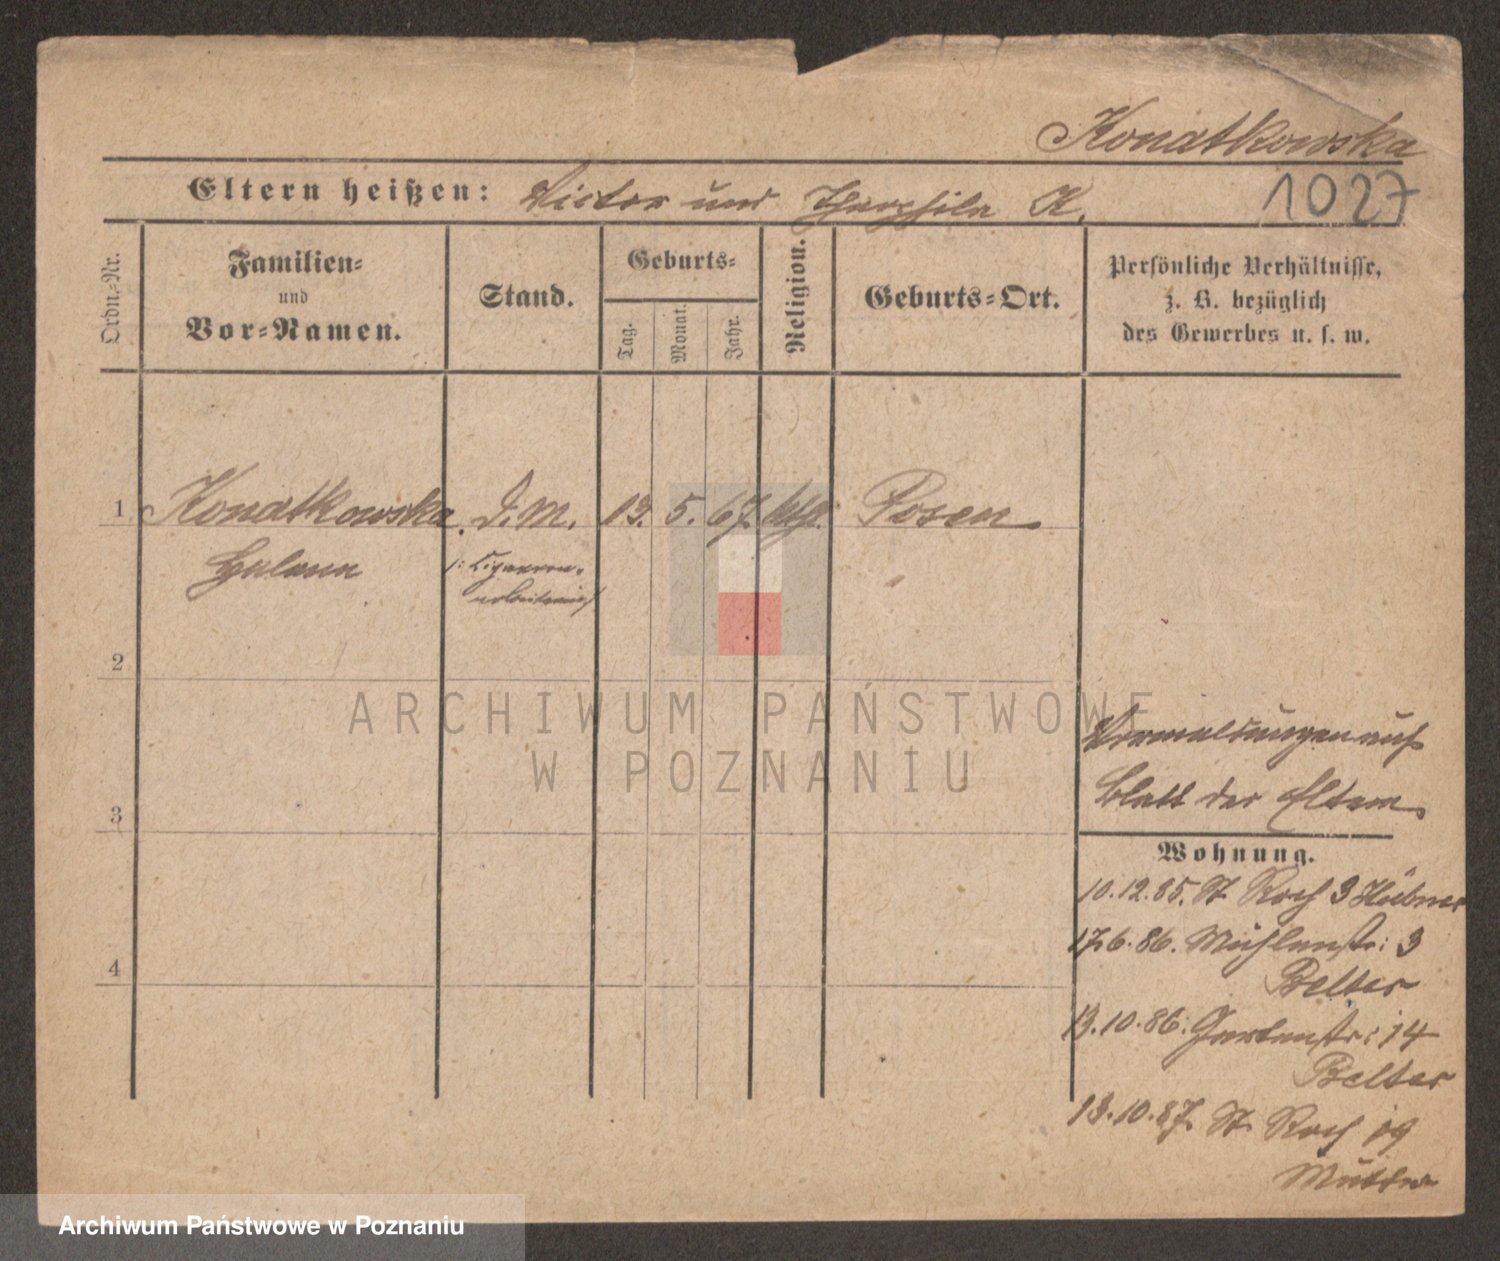 Konatkowska
Eltern heißen: Victor und Theophila K.
1027
Ordn.-Nr.
Familien-
und
Vor-Namen.
Stand.
Geburts-
Tag.
Monat.
Jahr.
Religion.
Geburts-Ort.
Persönliche Verhältnisse,
z. B. bezüglich
des Gewerbes u. s. w.
1 Konatkowska D. M. 12. 5. 67. kth. Posen
Helena
Cigarren-
arbeiterin
2
ARCHIWUM PAŃSTWOWE
W POZNANIU
3
4
Vermeldungen auf
Blatt der Eltern.
Wohnung.
10.12.85. St Roch 3 Hübner
17.6.86. Mühlenstr: 3
Belter
13.10.86. Gartenstr: 14
Belter
13.10.87. St Roch 19
Mutter
Archiwum Państwowe w Poznaniu